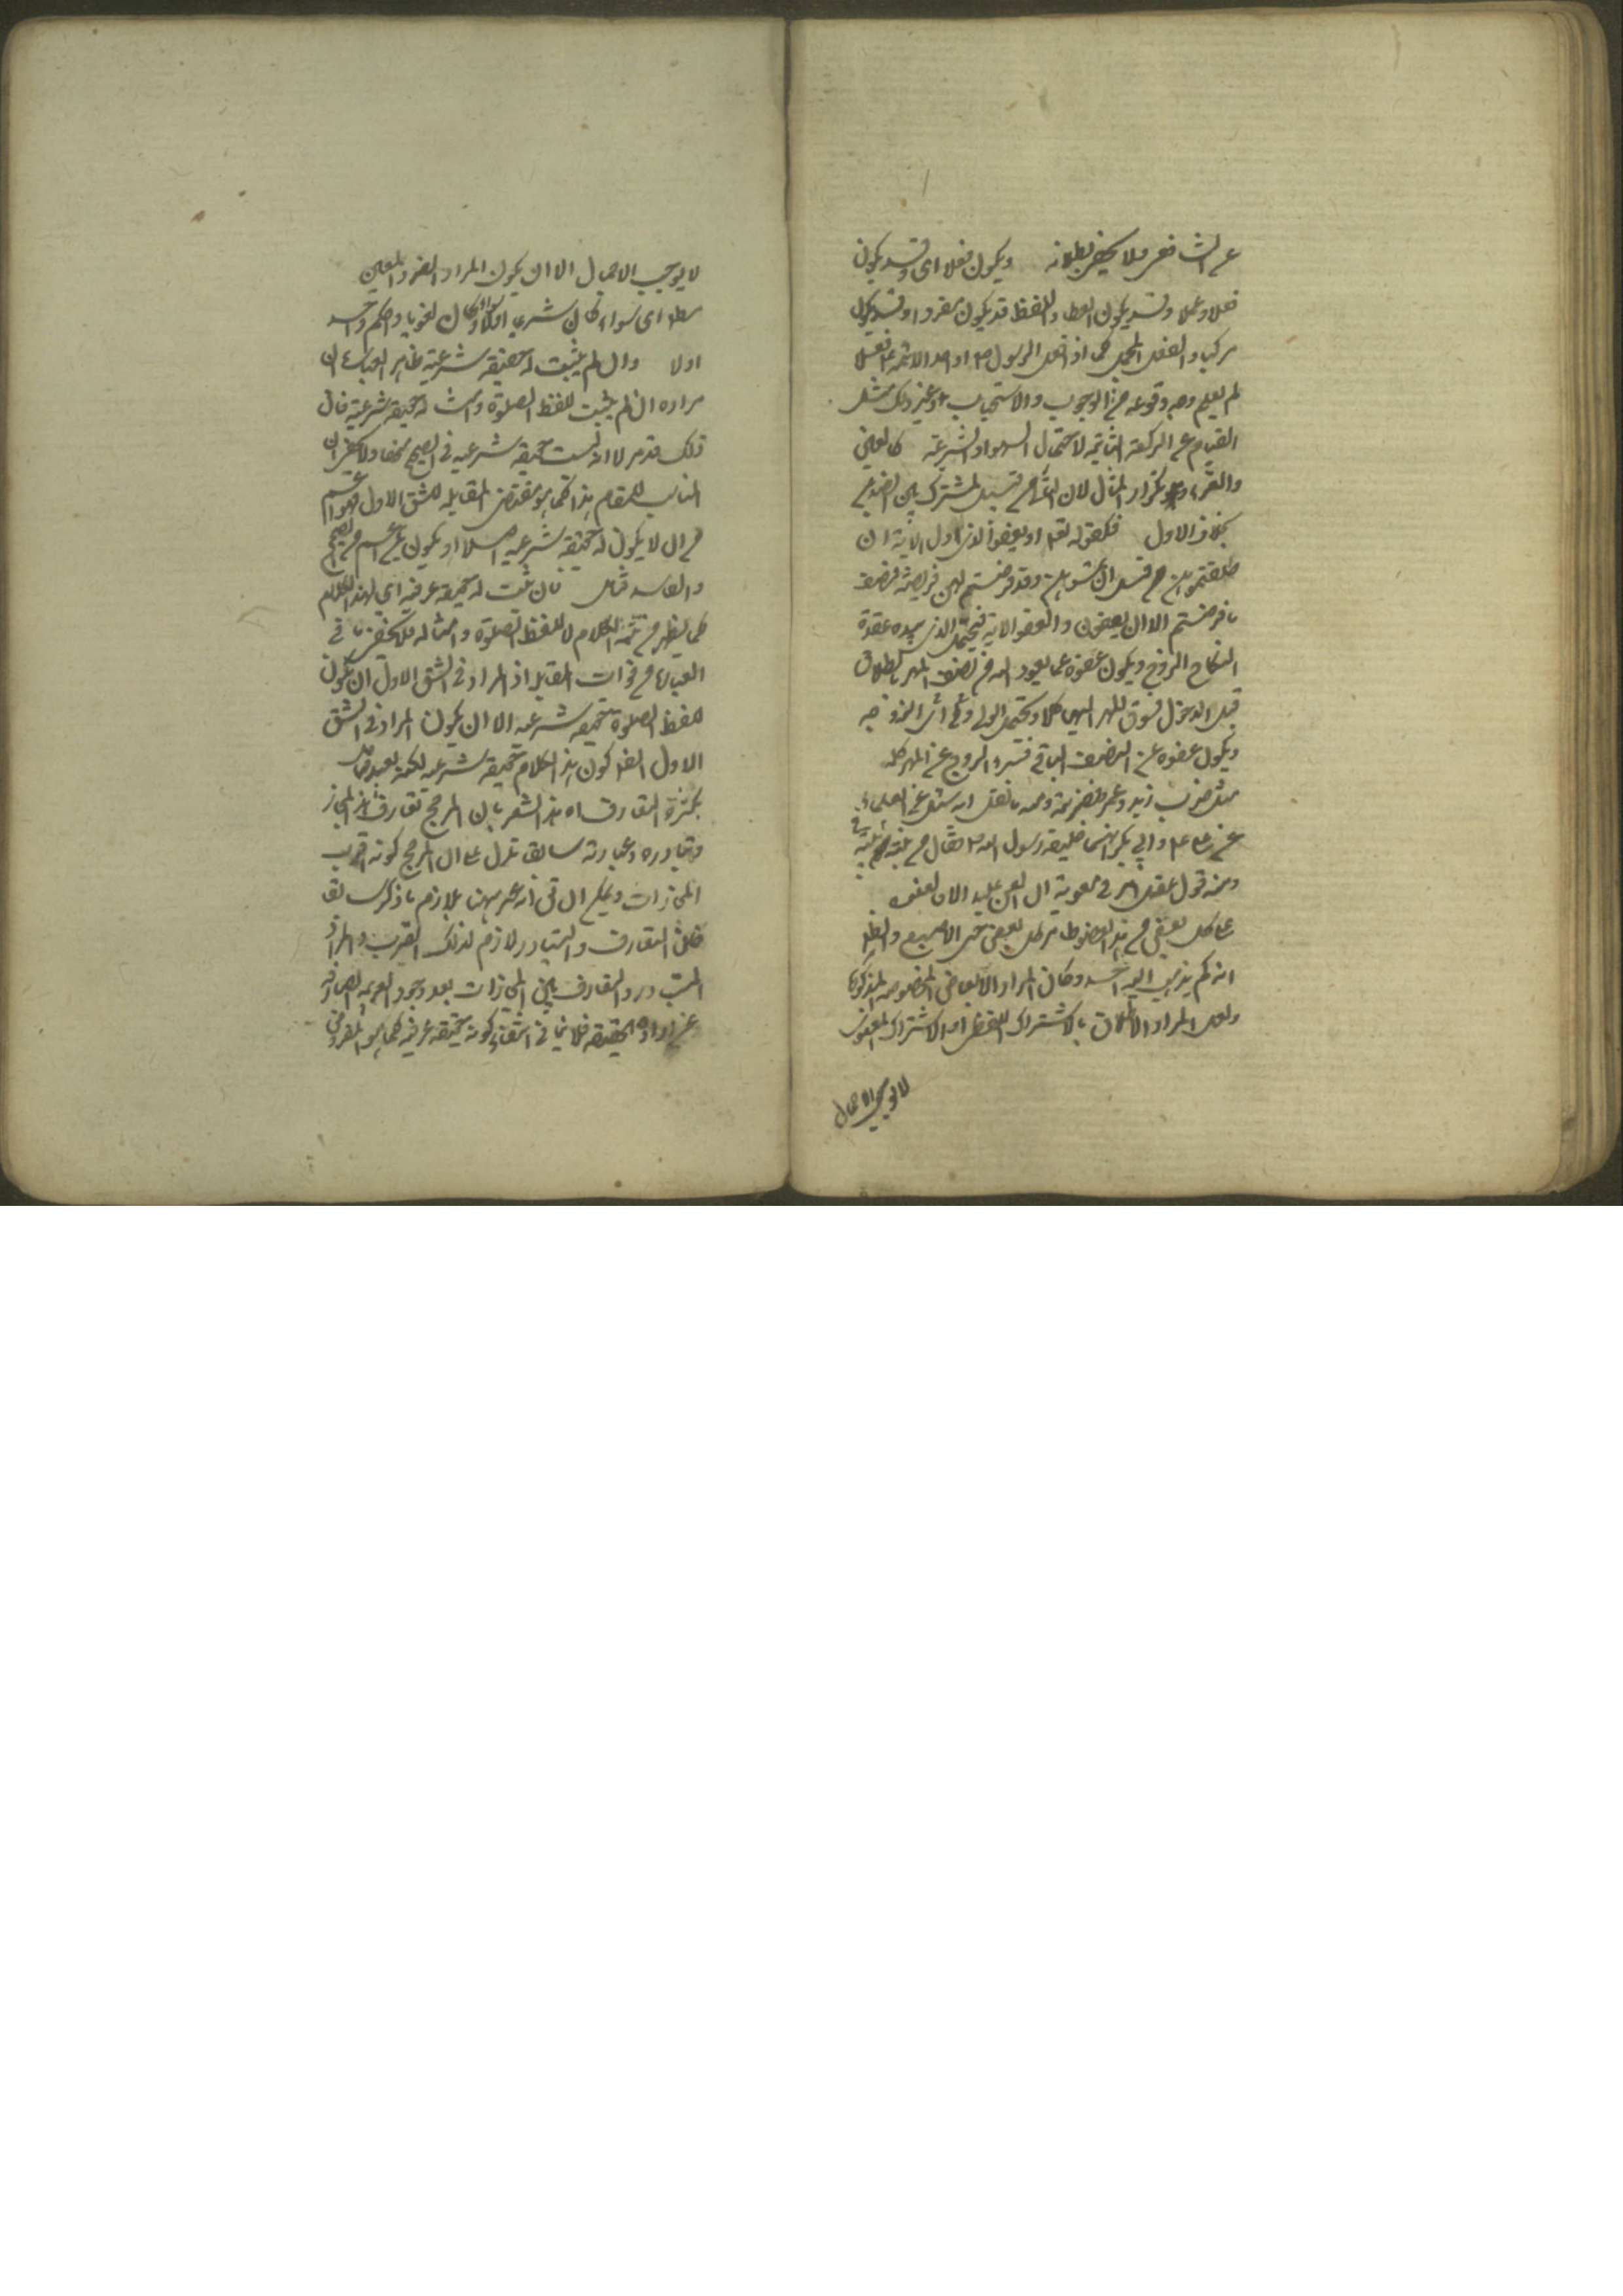 على الشافعي ولا يخفى بطلانه ويكون فعلا اى وقد يكون
فعلا وعملا وقد يكون لفظا واللفظ قد يكون مفردا وقد يكون
مركبا والفعل المجمل كما اذا فعل الرسول ص او احد الائمة ع فعلا
لم يعلم وجه وقوعه من الوجوب والاستحباب وغير ذلك مثل
القيام عن الركعة الثانية لاحتمال السهو والشرعية كالعين
والقرء وتكرار المثال لان الثانى من قبيل المشترك بين الضدين
بخلاف الاول فكقوله تعالى او يعفو الذى اول الاية ان
طلقتموهن من قبل ان تمسوهن وقد فرضتم لهن فريضة فنصف
ما فرضتم الا ان يعفون والعفو الاية فيحتمل الذى بيده عقدة
النكاح الزوج ويكون عفوه عما يعود اليه من نصف المهر بالطلاق
قبل الدخول فسوق المهر اليهن كملا ويحتمل الولى اى الزوجه
ويكون عفوه عن النصف الباقى فتبرء الزوج عن المهر كله
مثل ضرب زيد وعمرو فضربته ومنه ما نقل انه سئل عن بعض العلماء
عن على ع وابى بكر ايهما خليفة رسول الله ص فقال من بنته فى بيته
ومنه قول عقيل امرنى معوية ان العن عليا الا فالعنوه
على كل بعض من هذا العضو من كل بعض حتى الاصبع والظاهر
انه لم يذهب اليه احد وكان المراد الابعاض المخصوصه المذكورة
ولعل المراد الاطلاق بالاشتراك اللفظى او الاشتراك المعنوى
لا يوجب الاجمال
لا يوجب الاجمال الا ان يكون المراد الفرد المعين
مطلقا اى سواء كان شرعيا اولا وسواء كان لغويا ذا حكم واحد
اولا وان لم يثبت له حقيقة شرعية ظاهر العبارة ان
مراده ان لم يثبت للفظ الصلوة وامثاله حقيقة شرعية فان
ذلك قد مر لا انه ليست حقيقة شرعية فى الصحيح منها ولا يخفى ان
المناسب للمقام هذا كما هو مقتضى المقابله للشق الاول فهو اعم
من ان لا يكون له حقيقة شرعية اصلا او يكون للاعم من الصحيح
والفاسد فتامل فان ثبت له حقيقة عرفية اى لهذا الكلام
كما يظهر من تتمة الكلام لا للفظ الصلوة وامثاله فلا يخفى ما فى
العبارة من فوات المقابلة اذ المراد فى الشق الاول ان يكون
للفظ الصلوة حقيقة شرعية الا ان يكون المراد فى الشق
الاول ايضا كون هذا الكلام حقيقة شرعية لكنه بعيد فتامل
بكثرة التعارف اه هذا يشعر بان المرجح تعارف هذا المجاز
وتبادره وعبارته سابقا تدل على ان المرجح كونه اقرب
المجازات ويمكن ان نختار ههنا بلازم ما ذكر سابقا
فان التعارف والتبادر لازم لذلك القرب والمراد
التبادر والتعارف بين المجازات بعد وجود القرينة الصارفة
عن ارادة الحقيقة فلا ينافى انتفاء كونه حقيقة عرفية كما هو المفروض